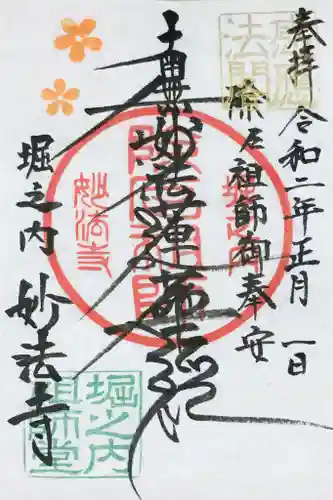 奉拝
令和二年正月一日
除厄祖師御奉安
南無妙法蓮華経
堀之内
妙法寺
妙法寺
堀之内
祖師堂